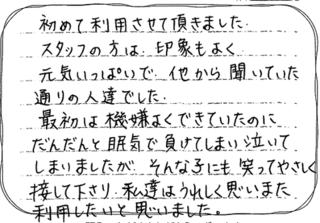 初めて利用させて頂きました.
スタッフの方は、印象もよく
元気いっぱいで、他から聞いていた
通りの人達でした.
最初は機嫌よくできていたのに
だんだんと眠気で負けてしまい泣いて
しまいましたが、そんな子にも笑ってやさしく
接して下さり、私達はうれしく思いまた
利用したいと思いました。